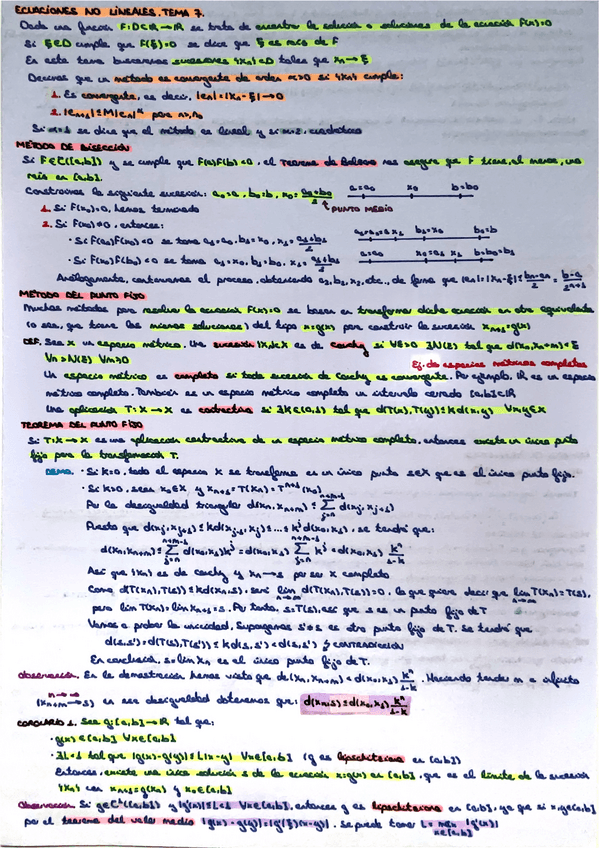 ECUACIONES NO LINEALES. TEMA 7.
Dada una función F:D⊂ℝ→ℝ se trata de encontrar la solución o soluciones de la ecuación F(x)=0
Si ξ∈D cumple que F(ξ)=0 se dice que ξ es raíz de F
En este tema buscaremos sucesiones {xn}⊂D tales que xn→ξ
Decimos que un método es convergente de orden α>0 si {xn} cumple:
1. Es convergente, es decir, |en|=|xn-ξ|→0
2. |en+1|≤M|en|^α para n≥n0
Si α=1 se dice que el método es lineal y si α=2, cuadrático
MÉTODO DE BISECCIÓN
Si F∈C([a,b]) y se cumple que F(a)F(b)<0, el Teorema de Bolzano nos asegura que F tiene, al menos, una
raíz en [a,b].
Construimos la siguiente sucesión: a0=a, b0=b, x0=(a0+b0)/2 a=a0 x0 b=b0
1. Si F(x0)=0, hemos terminado ↑ PUNTO MEDIO
2. Si F(x0)≠0, entonces: a1=a0=a x1 b1=x0 b0=b
· Si F(a0)F(x0)<0 se toma a1=a0, b1=x0, x1=(a1+b1)/2
· Si F(x0)F(b0)<0 se toma a1=x0, b1=b0, x1=(a1+b1)/2 a=a0 x0=a1 x1 b=b0=b1
Análogamente, continuamos el proceso, obteniendo a2, b2, x2, etc., de forma que |en|=|xn-ξ|≤(bn-an)/2=(b-a)/2^(n+1)
MÉTODO DEL PUNTO FIJO
Muchos métodos para resolver la ecuación F(x)=0 se basan en transformar dicha ecuación en otra equivalente
(o sea, que tiene las mismas soluciones) del tipo x=g(x) para construir la sucesión xn+1=g(xn)
DEF. Sea X un espacio métrico. Una sucesión {xn}⊂X es de Cauchy si ∀ε>0 ∃N(ε) tal que d(xn,xn+m)<ε
∀n>N(ε) ∀m≥0 Ej. de espacios métricos completos
Un espacio métrico es completo si toda sucesión de Cauchy es convergente. Por ejemplo, ℝ es un espacio
métrico completo. También es un espacio métrico completo un intervalo cerrado [a,b]⊂ℝ
Una aplicación T:X→X es contractiva si ∃K∈[0,1) tal que d(T(x),T(y))≤kd(x,y) ∀x,y∈X
TEOREMA DEL PUNTO FIJO
Si T:X→X es una aplicación contractiva de un espacio métrico completo, entonces existe un único punto
fijo para la transformación T.
DEMO. · Si K=0, todo el espacio X se transforma en un único punto s∈X que es el único punto fijo.
· Si K>0, sean x0∈X y xn+1=T(xn)=T^(n+1)(x0)
Por la desigualdad triangular d(xn,xn+m)≤∑_{j=n}^{n+m-1} d(xj,xj+1)
Puesto que d(xj,xj+1)≤kd(xj-1,xj)≤...≤k^j d(x0,x1), se tendrá que:
d(xn,xn+m)≤∑_{j=n}^{n+m-1} d(x0,x1)k^j=d(x0,x1)∑_{j=n}^{n+m-1} k^j<d(x0,x1) k^n/(1-k)
Así que {xn} es de Cauchy y xn→s por ser X completo
Como d(T(xn),T(s))≤kd(xn,s), será lim_{n→∞} d(T(xn),T(s))=0, lo que quiere decir que lim_{n→∞} T(xn)=T(s),
pero lim T(xn)=lim xn+1=s. Por tanto, s=T(s), así que s es un punto fijo de T
Vamos a probar la unicidad. Supongamos s'≠s es otro punto fijo de T. Se tendrá que
d(s,s')=d(T(s),T(s'))≤kd(s,s')<d(s,s') CONTRADICCIÓN
En conclusión, s=lim xn es el único punto fijo de T.
Observación. En la demostración hemos visto que d(xn,xn+m)<d(x0,x1) k^n/(1-k). Haciendo tender m a infinito
(xn+m→s) en esa desigualdad obtenemos que: d(xn,s)≤d(x0,x1) k^n/(1-k)
COROLARIO 1. Sea g:[a,b]→ℝ tal que:
· g(x)∈[a,b] ∀x∈[a,b]
· ∃L<1 tal que |g(x)-g(y)|≤L|x-y| ∀x∈[a,b] (g es lipschitziana en [a,b])
Entonces, existe una única solución s de la ecuación x=g(x) en [a,b], que es el límite de la sucesión
{xn} con xn+1=g(xn) y x0∈[a,b]
Observación. Si g∈C¹([a,b]) y |g'(x)|≤L<1 ∀x∈[a,b], entonces g es lipschitziana en [a,b], ya que si x,y∈[a,b]
por el teorema del valor medio |g(x)-g(y)|=|g'(ξ)(x-y)|. Se puede tomar L=máx_{x∈[a,b]} |g'(x)|